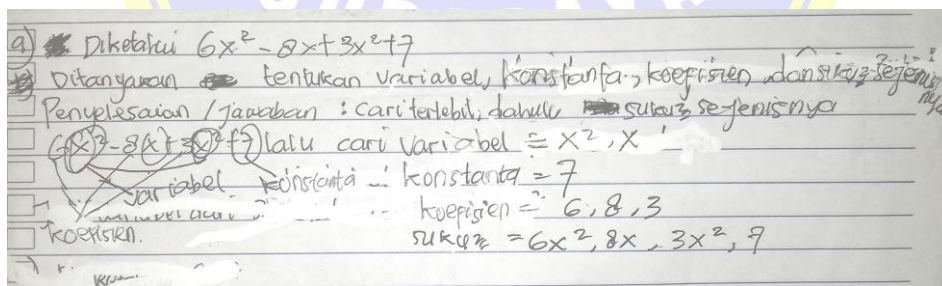 a) Diketahui 6x² - 8x + 3x² + 7
Ditanyakan tentukan variabel, konstanta, koefisien, dan suku2 sejenisnya
Penyelesaian / jawaban : cari terlebih dahulu suku2 sejenisnya
6x² - 8x + 3x² + 7 lalu cari variabel = x², x
variabel konstanta konstanta = 7
koefisien = 6, 8, 3
koefisien. suku2 = 6x², 8x, 3x², 7